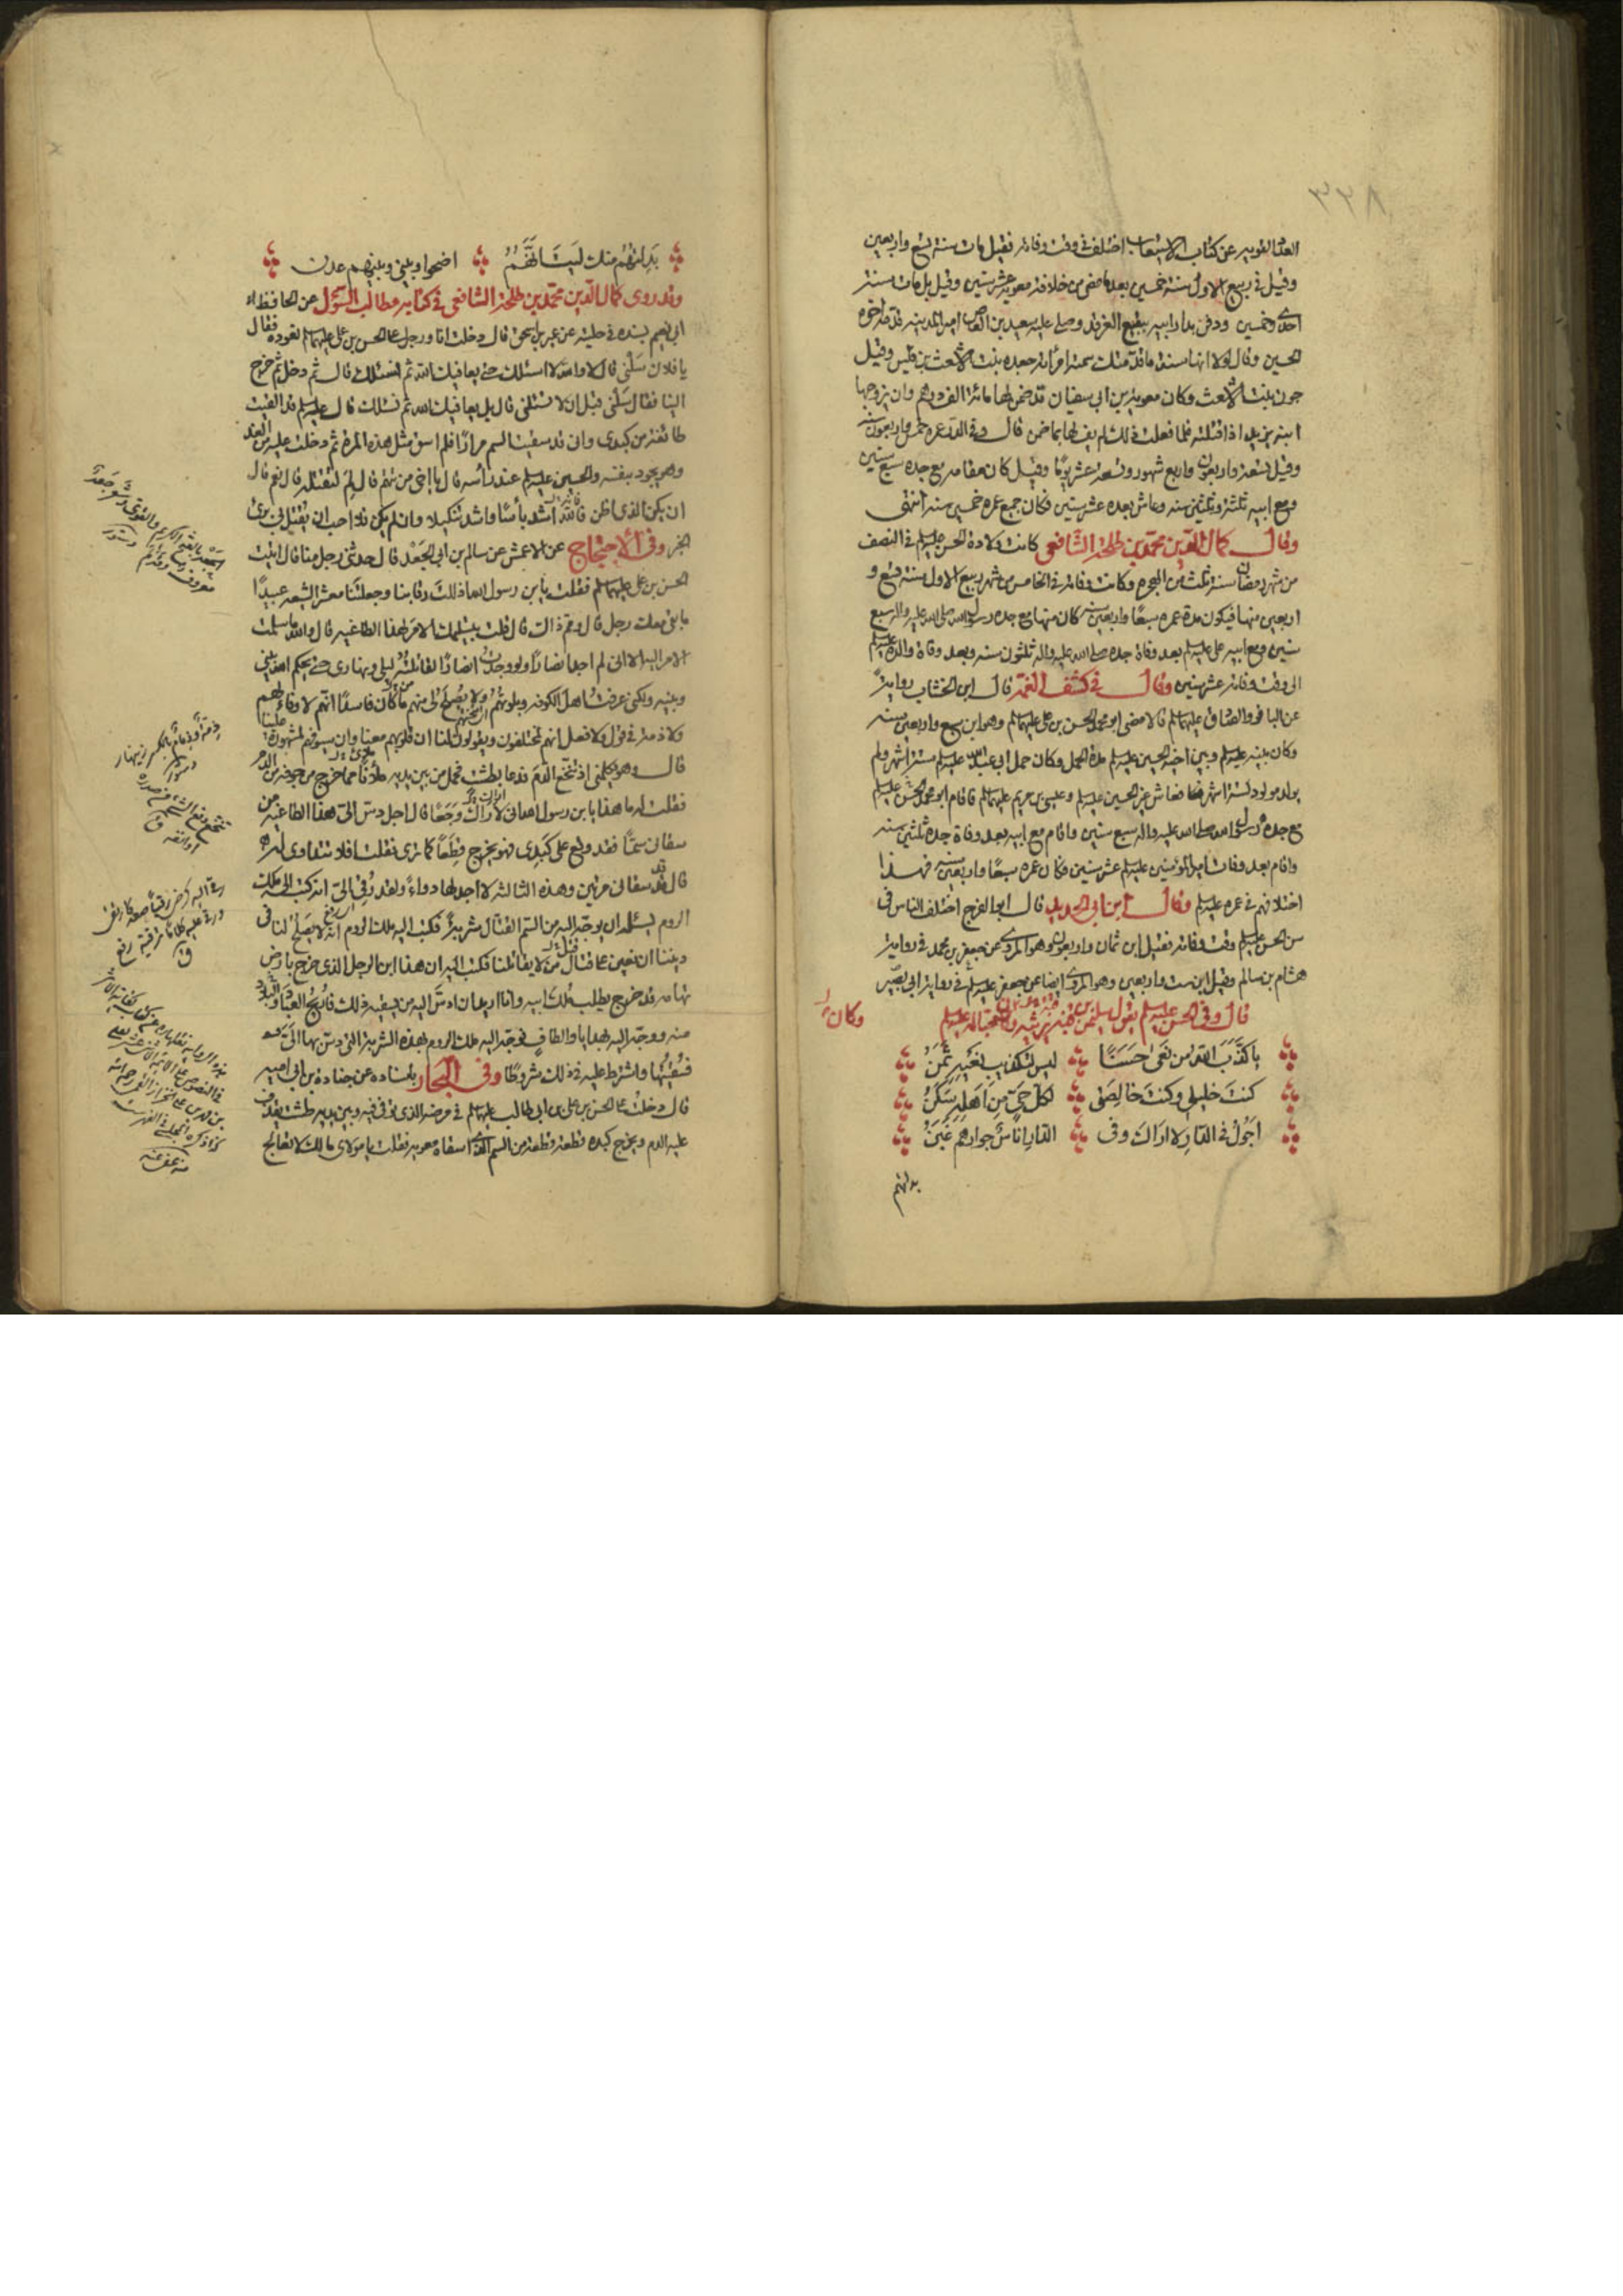 ٣٣٨
العدد القويه عن كتاب الاستيعاب اختلف في وقت وفاته فقيل مات سنة تسع واربعين
وقيل في ربيع الاول سنة خمسين بعد ما مضى من خلافة معويه عشر سنين وقيل بل مات سنة
احدى وخمسين ودفن بدار ابيه ببقيع الغرقد وصلى عليه سعيد بن العاص امير المدينه قدمه اخوه
الحسين وقال لولا انها سنة ما قدمتك سمته امرأته جعده بنت الاشعث بن قيس وقيل
جون بنت الاشعث وكان معوية بن ابى سفيان قد ضمن لها مائة الف درهم وان يزوجها
ابنه يزيد اذا قتلته فلما فعلت ذلك لم يف لها بما ضمن قال وفي الدر عمره خمس واربعون سنه
وقيل تسعة واربعون واربع شهور وتسعة عشر يومًا وقيل كان مقامه مع جده سبع سنين
ومع ابيه ثلثة وثلثين سنه وعاش بعده عشر سنين فكان جميع عمره خمسين سنه انتهى
وقال كمال الدين محمد بن طلحة الشافعى كانت ولادة الحسن عليه السلم في النصف
من شهر رمضان سنة ثلث من الهجرة وكانت وفاته في الخامس من شهر ربيع الاول سنة تسع و
اربعين منها فيكون مدة عمره سبعًا واربعين سنه كان منها مع جده رسول الله صلى الله عليه واله سبع
سنين ومع ابيه على عليه السلم بعد وفاة جده صلى الله عليه واله ثلثون سنه وبعد وفاة والده عليه السلم
الى وقت وفاته عشر سنين وقال في كشف الغمة قال ابن الخشاب رواية
عن الباقر والصادق عليهما السلم قالا مضى ابو محمد الحسن بن على عليهما السلم وهو ابن سبع واربعين سنه
وكان بينه عليه السلم وبين اخيه الحسين عليه السلم مدة الحمل وكان حمل ابى عبد الله عليه السلم ستة اشهر ولم
يولد مولود لستة اشهر فعاش غير الحسين عليه السلم وعيسى بن مريم عليهما السلم فاقام ابو محمد الحسن عليه السلم
مع جده رسول الله صلى الله عليه واله سبع سنين واقام مع ابيه بعد وفاة جده ثلثين سنه
واقام بعد وفات امير المؤمنين عليه السلم عشر سنين فكان عمره سبعًا واربعين سنه فهذا
اختلافهم في عمره عليه السلم وقال ابن ابى الحديد قال ابو الفرج اختلف الناس في
سن الحسن عليه السلم وقت وفاته فقيل ابن ثمان واربعون وهو المروى عن جعفر بن محمد في رواية
هشام بن سالم وقيل ابن ست واربعين وهو المروى ايضا عن جعفر عليه السلم في رواية ابى بصير
قال وفي الحسن عليه السلم يقول سليمن بن قتة يرثيه وكان محبًا له عليه السلم
وكان
يا كذّب الله من نعى حسنًا ليس لتكذيب نعيه ثمن
كنت خليلى وكنت خالصتى لكل حى من اهله سكن
اجول في الدار لا اراك وفى الدار اناس جوارهم غبن
بدلتهم
بدلتهم منك ليت انهم اضحوا وبينى وبينهم عدن
وقد روى كمال الدين محمد بن طلحة الشافعى في كتابه مطالب السؤل عن الحافظ
ابى نعيم بسنده في حليته عن عمير بن اسحق قال دخلت انا ورجل على الحسن بن على عليهما السلم نعوده فقال
يا فلان سلنى قال لا والله لا اسئلك حتى يعافيك الله ثم نسئلك قال ثم دخل ثم خرج
الينا فقال سلنى قبل ان لا تسئلنى قال بل يعافيك الله ثم نسئلك قال عليه السلم قد القيت
طائفة من كبدى وانى قد سقيت السم مرارًا فلم اسق مثل هذه المرة ثم دخلت عليه من الغد
وهو يجود بنفسه والحسين عليه السلم عند رأسه قال يا اخى من تتهم قال لم لتقتله قال نعم قال
ان يكن الذى اظن فالله اشد بأسًا واشد تنكيلا وان لم يكن فلا احب ان يقتل بى برئ
الخبر وفى الاحتجاج عن الاعمش عن سالم بن ابى الجعد قال حدثنى رجل منا قال اتيت
الحسن بن على عليهما السلم فقلت يا بن رسول الله اذللت رقابنا وجعلتنا معشر الشيعه عبيدًا
ما بقى معك رجل قال ومم ذاك قال قلت بتسليمك الامر لهذا الطاغيه قال والله ما سلمت
الامر اليه الا انى لم اجد انصارًا ولو وجدت انصارًا لقاتلته ليلى ونهارى حتى يحكم الله بينى
وبينه ولكنى عرفت اهل الكوفه وبلوتهم ولا يصلح لى منهم من كان فاسدًا انهم لا وفاء لهم
ولا ذمة في قول ولا فعل انهم لمختلفون ويقولون لنا ان قلوبهم معنا وان سيوفهم لمشهورة علينا
قال وهو يكلمنى اذ تنخع الدم فدعا بطشت فحمل من بين يديه ملآن مما خرج من جوفه من الدم
فقلت له ما هذا يا بن رسول الله انى لاراك وجعًا قال اجل دس الى هذا الطاغيه من
سقانى سمًا فقد وقع على كبدى فهو يخرج قطعًا كما ترى فقلت افلا تتداوى
قال قد سقانى مرتين وهذه الثالثه لا اجد لها دواءً ولقد رقى الى انه كتب الى ملك
الروم يسئله ان يوجه اليه من السم القتال شربة فكتب اليه ملك الروم انه لا يصلح لنا في
ديننا ان نعين على قتال من لا يقاتلنا فكتب اليه ان هذا ابن الرجل الذى خرج بارض
تهامه قد خرج يطلب ملك ابيه وانا اريد ان ادس اليه من يسقيه ذلك فاريح العباد والبلاد
منه ووجه اليه بهدايا والطاف فوجه اليه ملك الروم بهذه الشربة التى دس بها الى
فسقيتها واشترط عليه في ذلك شروطًا وفى البحار باسناده عن جنادة بن ابى اميه
قال دخلت على الحسن بن على بن ابى طالب عليهما السلم في مرضه الذى توفى فيه وبين يديه طشت يقذف
عليه الدم ويخرج كبده قطعة قطعة من السم الذى اسقاه معويه فقلت يا مولاى مالك لا تعالج